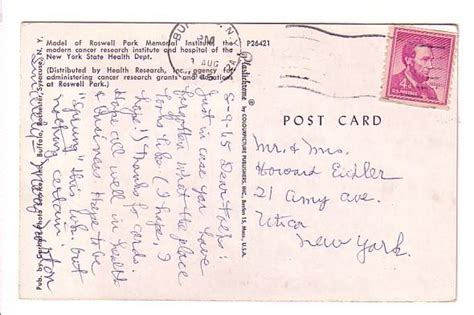 Model of Roswell Park Memorial Institute, the
modern cancer research institute and hospital of the
New York State Health Dept.
P26421
(Distributed by Health Research, Inc., agency for
administering cancer research grants and donations
at Roswell Park.)
N.Y.
PM
AUG
U.S. POSTAGE
Pub. by Photo Buffalo, Rochester, Syracuse, N. Y.
Plastichrome by COLOURPICTURE PUBLISHERS, INC., Boston 15, Mass., U.S.A.
POST CARD
8-9-65 Dear Folks:
Just in case you have
forgotten what the place
looks like (I hope, I
hope!) Thanks for card.
Hope all well in health
& business. Hope to be
"sprung" this wk. but
nothing certain.
Mr. & Mrs.
Howard Eidler
21 Amy ave.
Utica
New York.